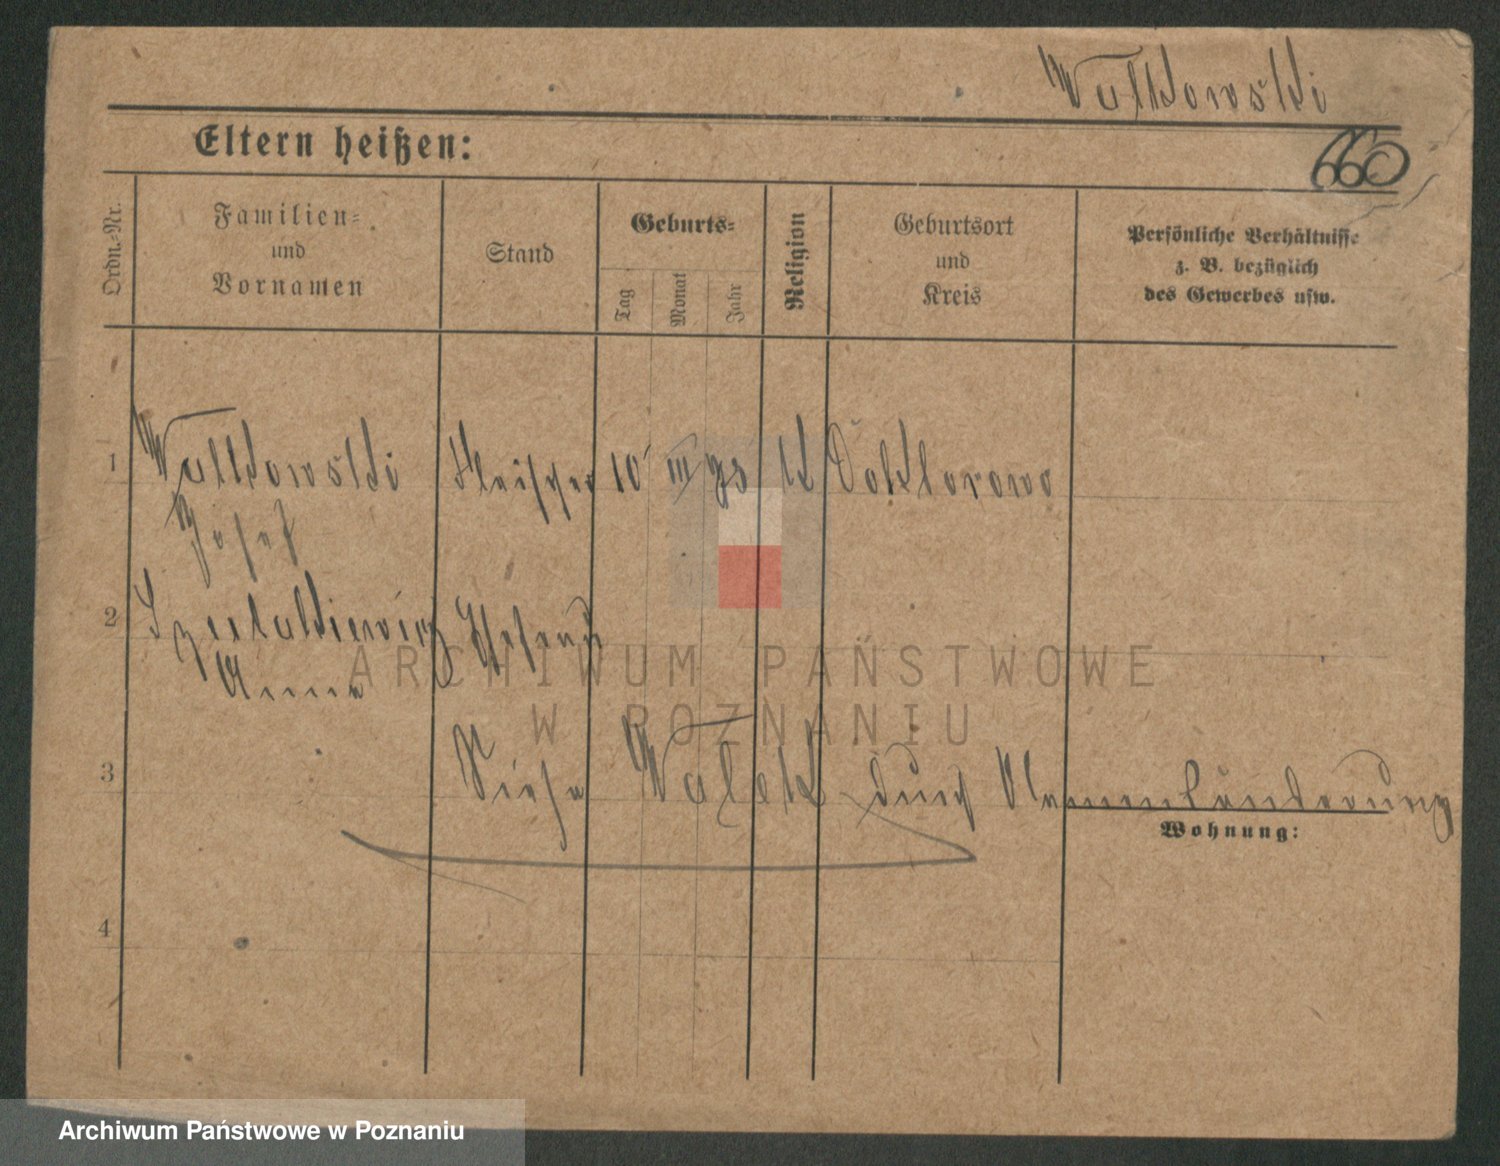 Walkowski
660
Eltern heißen:
Ordn.-Nr.
Familien-
und
Vornamen
Stand
Geburts-
Tag
Monat
Jahr
Religion
Geburtsort
und
Kreis
Persönliche Verhältnisse
z. B. bezüglich
des Gewerbes usw.
1 Walkowski Fleischer 10 III k Doktorowo
Josef
2 Ehefrau
Anna
ARCHIWUM PAŃSTWOWE
W POZNANIU
3 Siehe Walek durch Namenänderung
Wohnung:
4
Archiwum Państwowe w Poznaniu